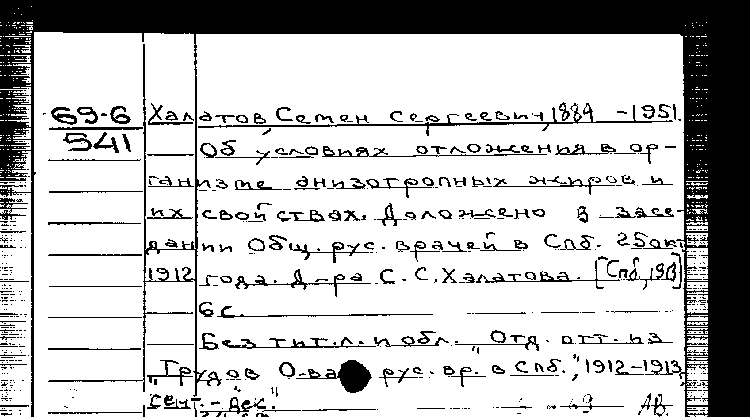 69-6
541
Халатов, Семен Сергеевич, 1884 - 1951.
Об условиях отложения в ор-
ганизме анизотропных жиров и
их свойствах. Доложено в засе-
дании Общ. рус. врачей в Спб. 25 окт
1912 года. Д-ра С. С. Халатова. [Спб, 1913]
6 с.
Без тит. л. и обл. "Отд. отт. из
"Трудов О-ва рус. вр. в Спб.", 1912-1913,
сент. - дек."
69 АВ.